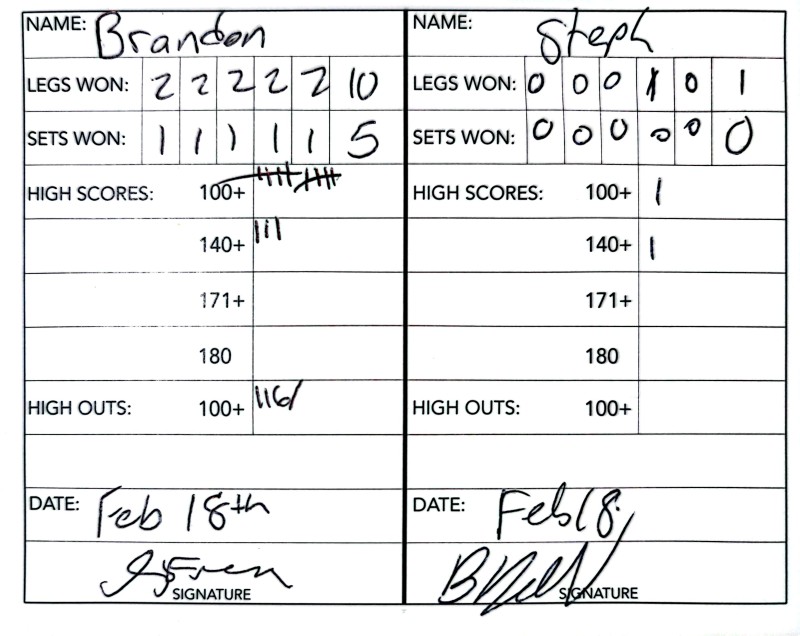 NAME: Brandon
LEGS WON: 2 2 2 2 2 10
SETS WON: 1 1 1 1 1 5
HIGH SCORES: 100+ 卌 卌
140+ III
171+
180
HIGH OUTS: 100+ 116/
DATE: Feb 18th
SIGNATURE
NAME: Steph
LEGS WON: 0 0 0 1 0 1
SETS WON: 0 0 0 0 0 0
HIGH SCORES: 100+ I
140+ I
171+
180
HIGH OUTS: 100+
DATE: Feb 18
SIGNATURE